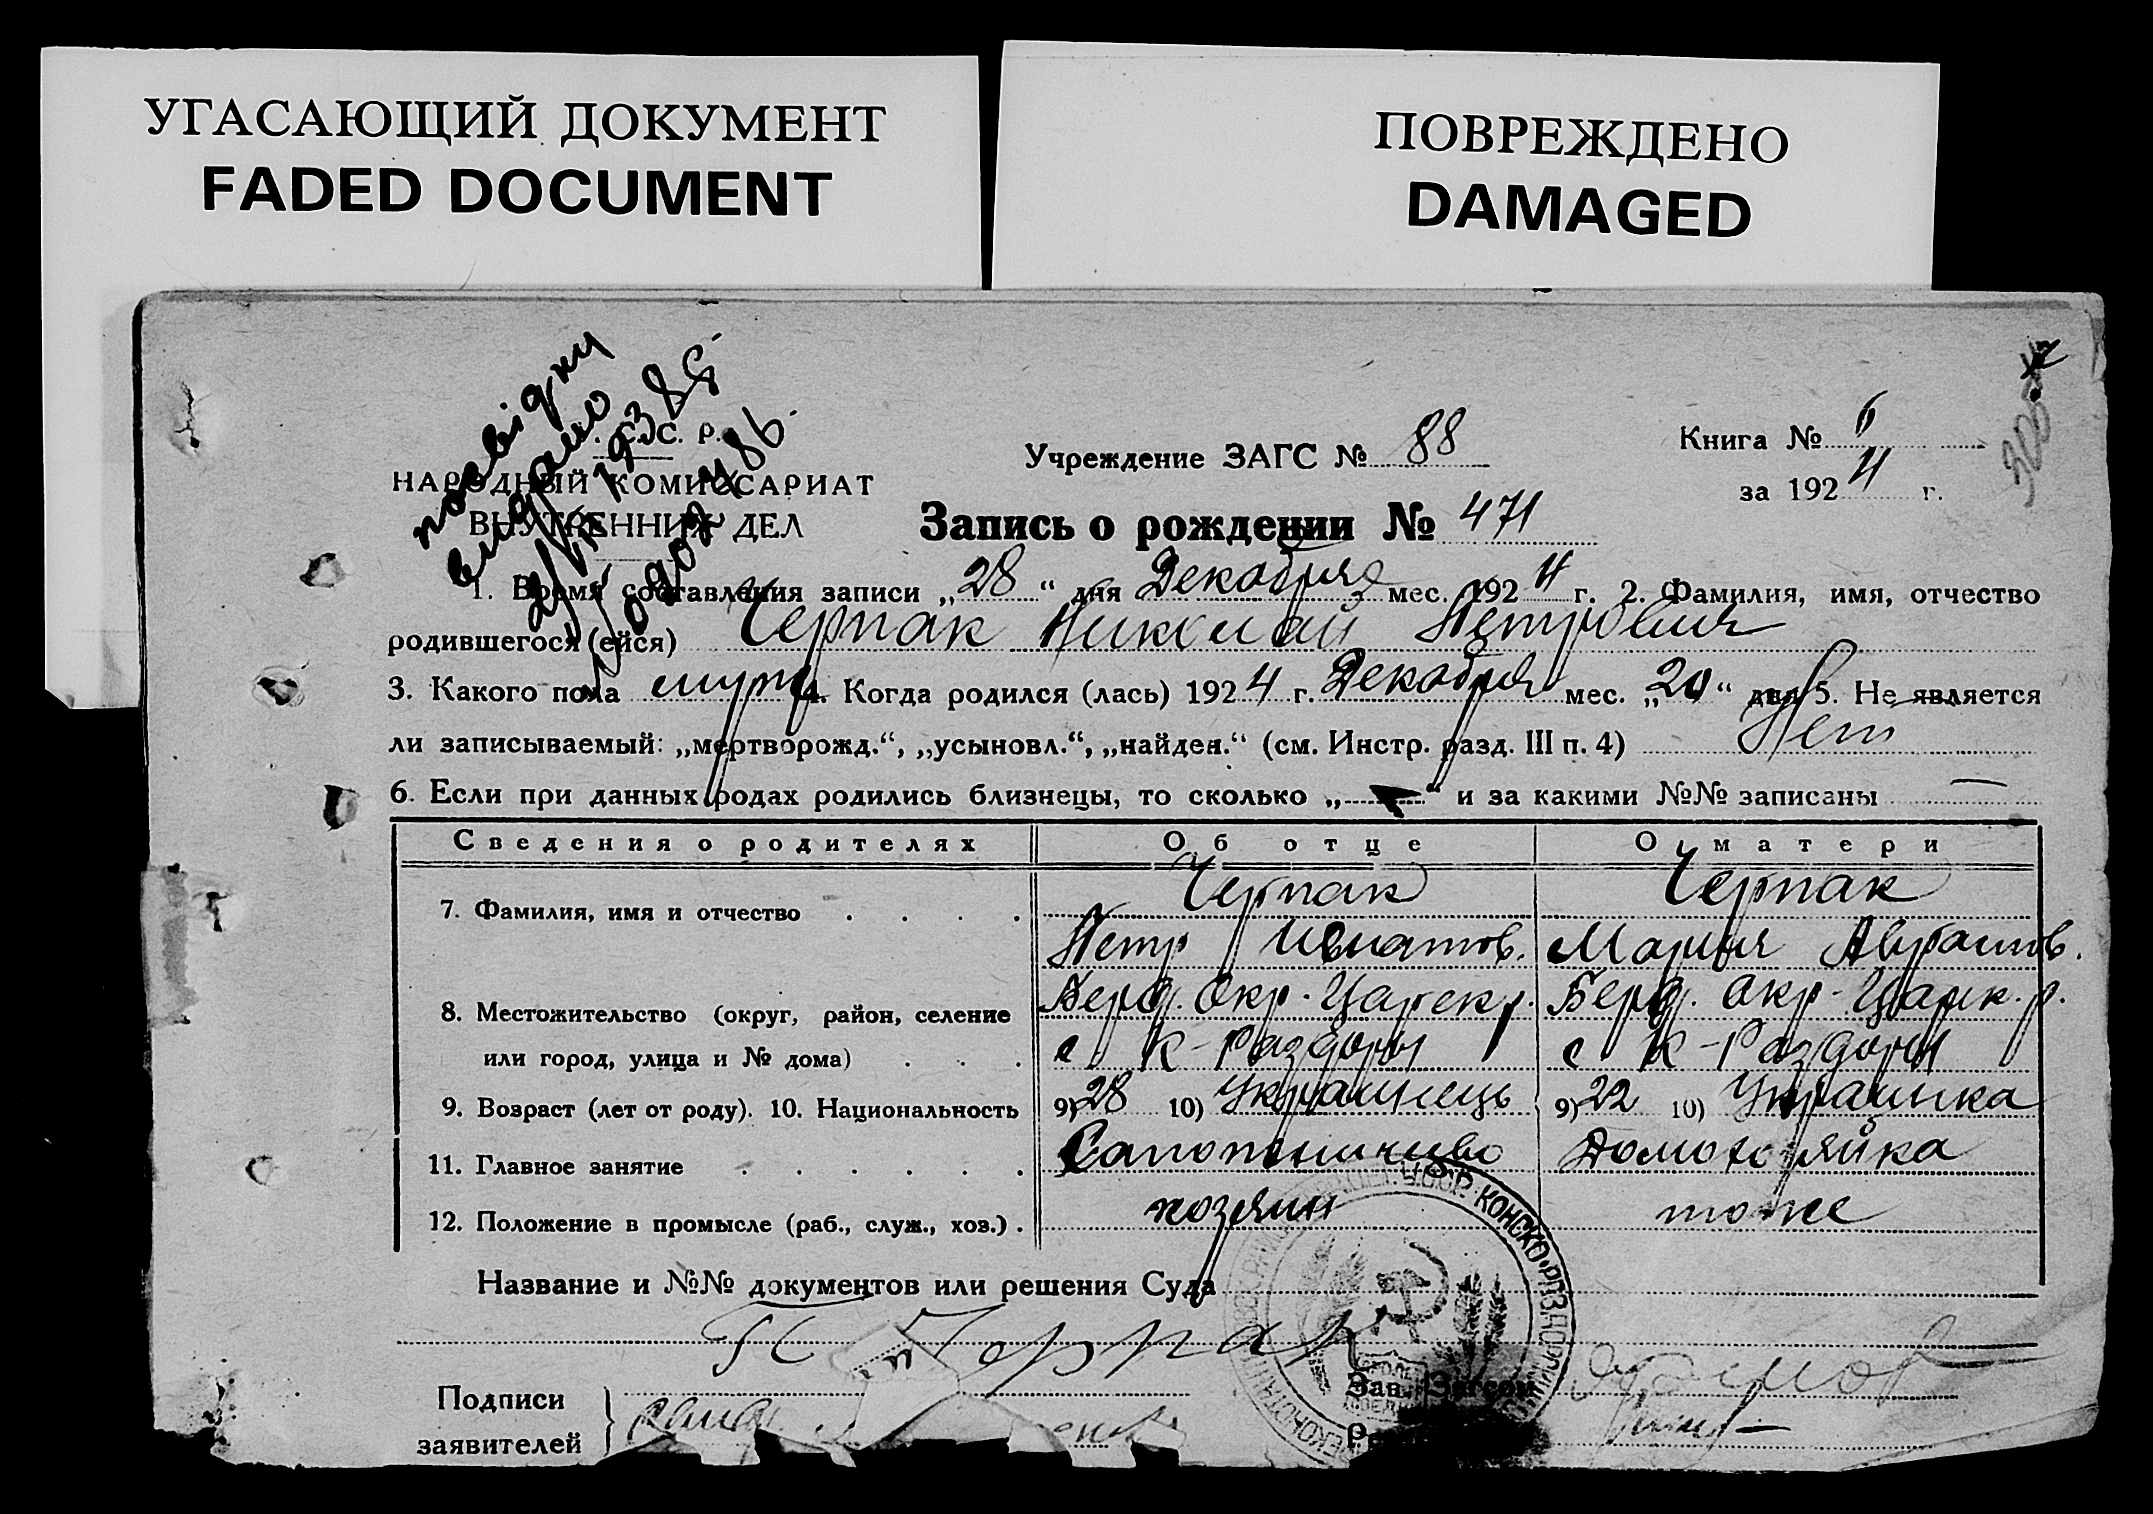 УГАСАЮЩИЙ ДОКУМЕНТ
FADED DOCUMENT
ПОВРЕЖДЕНО
DAMAGED
довідку
видано
1938 р.
с. С. Р.
НАРОДНЫЙ КОМИССАРИАТ
ВНУТРЕННИХ ДЕЛ
Учреждение ЗАГС № 88
Книга № 6
за 1924 г.
Запись о рождении № 471
1. Время составления записи „28“ дня Декабря мес. 1924 г. 2. Фамилия, имя, отчество
родившегося (ейся) Черпак Николай Петрович
3. Какого пола муж 4. Когда родился (лась) 1924 г. Декабря мес. „20“ дня 5. Не является
ли записываемый: „мертворожд.“, „усыновл.“, „найден.“ (см. Инстр. разд. III п. 4) Нет
6. Если при данных родах родились близнецы, то сколько „ — “ и за какими №№ записаны —
Сведения о родителях Об отце О матери
7. Фамилия, имя и отчество . . . . Черпак Черпак
Петр Игнатов. Мария Абрамов.
8. Местожительство (округ, район, селение Берд. Окр. Царек. р. Берд. Окр. Царек. р.
или город, улица и № дома) . . . с К-Раздоры с К-Раздоры
9. Возраст (лет от роду). 10. Национальность 9) 28 10) Украинець 9) 22 10) Украинка
11. Главное занятие . . . . . . Сапожничево Домохозяйка
12. Положение в промысле (раб., служ., хоз.) . хозяин тоже
Название и №№ документов или решения Суда
У.С.С.Р. КОНСКО-РАЗДОРСК
П Черпак
Подписи
заявителей
Зав. Загсом